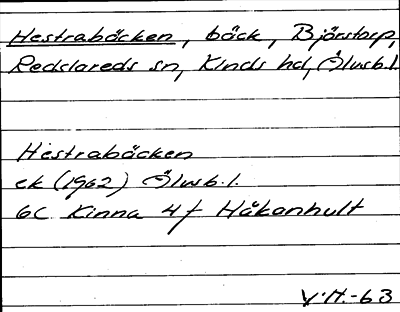 Hestrabäcken, bäck, Björstorp,
Redslareds sn, Kinds hd, Älvsb.l.
Hestrabäcken
ek (1962) Älvsb.l.
6C Kinna 4f Håkanhult
V.H.-63